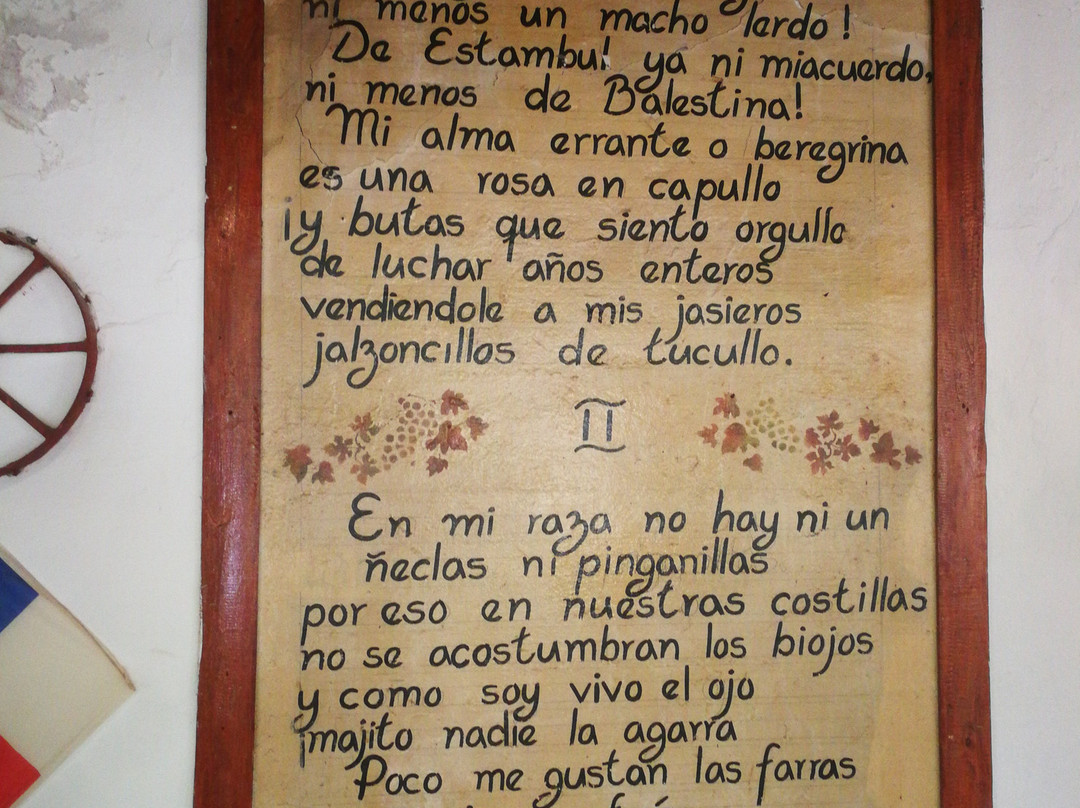 ni menos un macho lerdo!
De Estambul ya ni miacuerdo,
ni menos de Balestina!
Mi alma errante o beregrina
es una rosa en capullo
¡y butas que siento orgullo
de luchar años enteros
vendiendole a mis jasieros
jalzoncillos de tucullo.
II
En mi raza no hay ni un
ñeclas ni pinganillas
por eso en nuestras costillas
no se acostumbran los biojos
y como soy vivo el ojo
¡majito nadie la agarra
Poco me gustan las farras